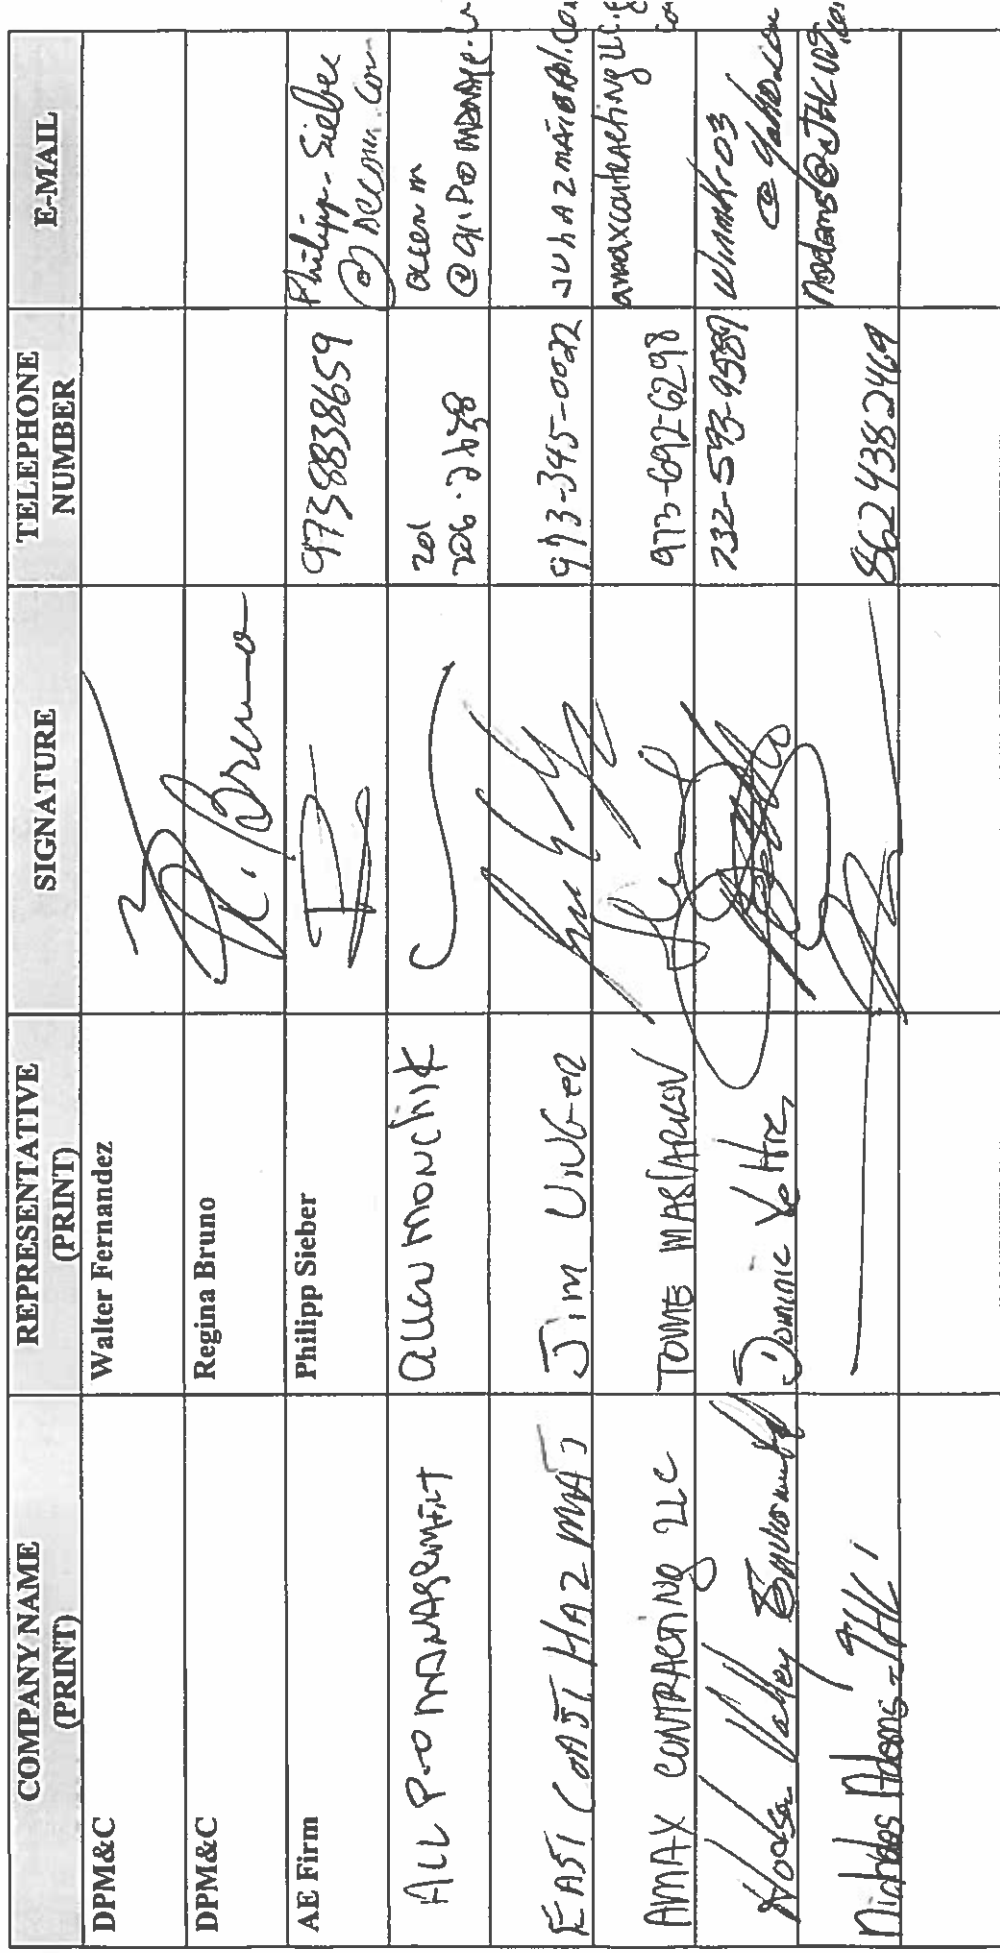 COMPANY NAME
(PRINT)
REPRESENTATIVE
(PRINT)
SIGNATURE
TELEPHONE
NUMBER
E-MAIL
DPM&C
Walter Fernandez
DPM&C
Regina Bruno
R. Bruno
AE Firm
Philipp Sieber
9738838659
Philipp. Sieber
@ Aecom.com
ALL Pro MANAgement
allen monchik
201
206.2638
@AllProMANAge.
EAST COAST HAZ MAT
Jim UNGER
973-345-0022
AMAX CONTRACTING LLC
TOME MASLARKOV
973-692-6298
amaxcontracting llc.
Hudson Valley
Dominic
732-593-9589
@ yahoo.com
Nicholas Adams - JHC 1
8624382469